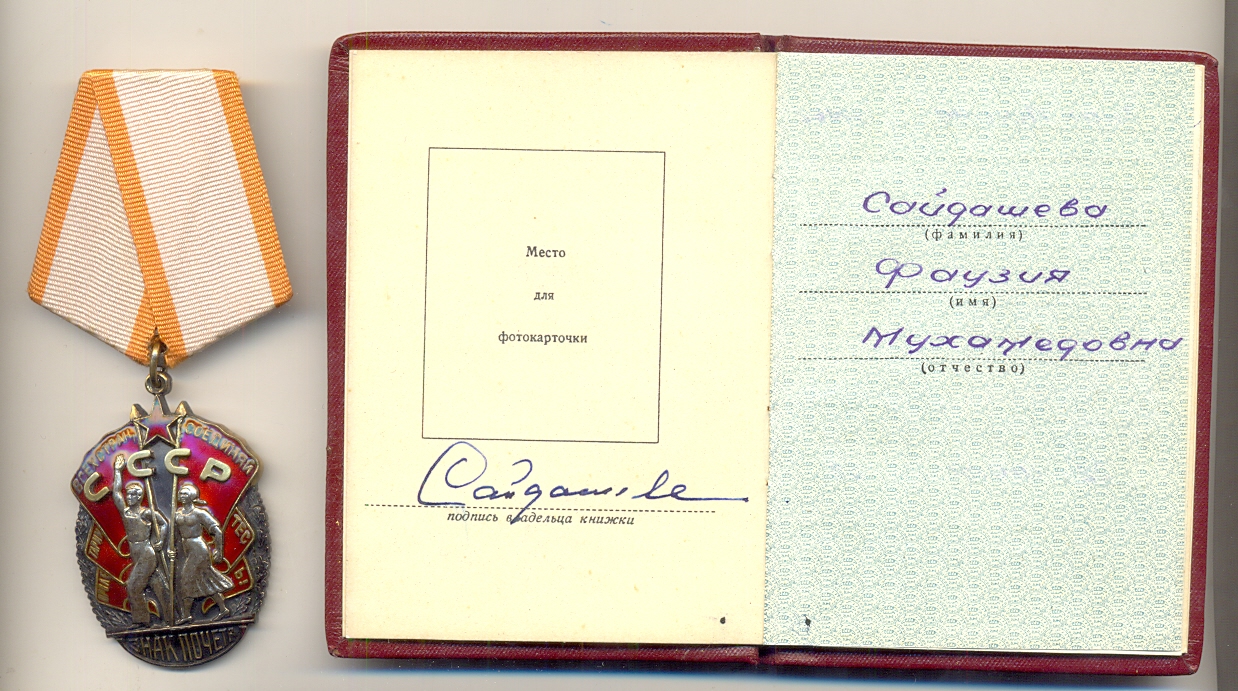 ВСЕХ СТРАН, СОЕДИНЯЙ
СССР
ПРОЛЕ ТАРИИ
ТЕС Ь!
ЗНАК ПОЧЕТА
Место
для
фотокарточки
Сайдашева
подпись владельца книжки
Сайдашева
(фамилия)
Фаузия
(имя)
Мухамедовна
(отчество)